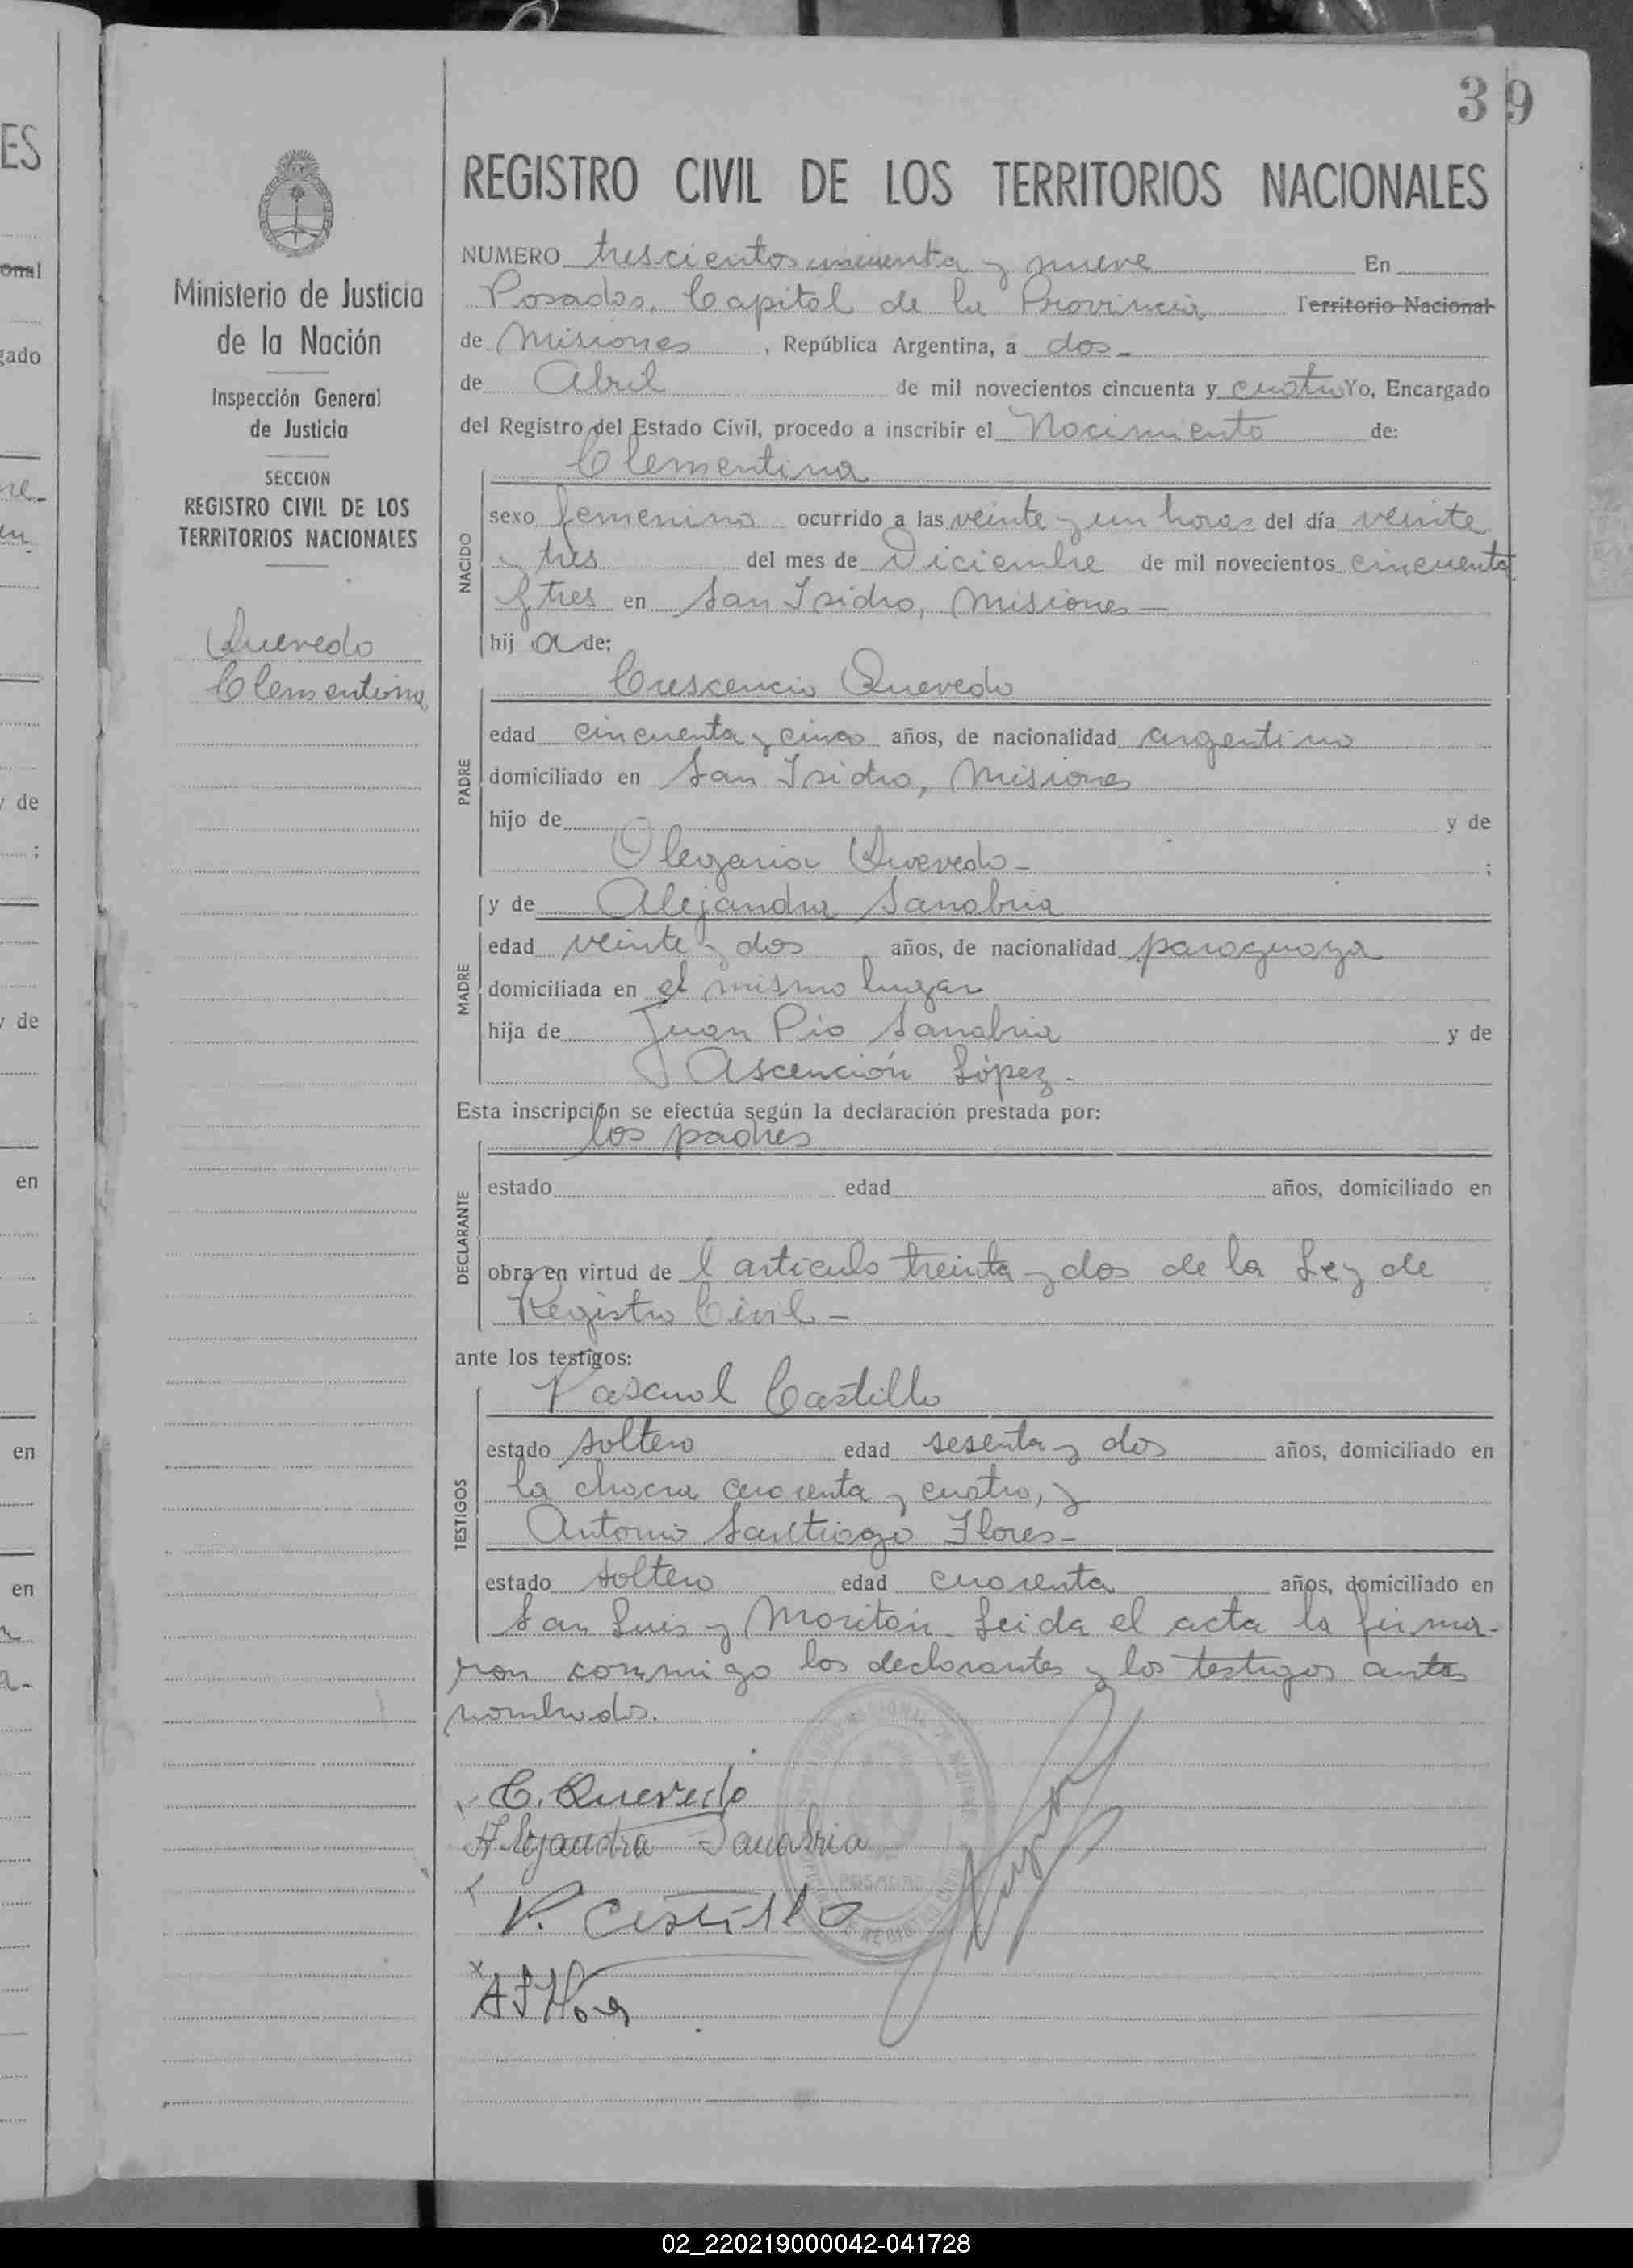 39
ES
REGISTRO CIVIL DE LOS TERRITORIOS NACIONALES
Ministerio de Justicia
de la Nación
Inspección General
de Justicia
SECCION
REGISTRO CIVIL DE LOS
TERRITORIOS NACIONALES
Quevedo
Clementina
NUMERO trescientos cincuenta y nueve En
Posadas, Capital de la Provincia Territorio Nacional
de Misiones, República Argentina, a dos-
de Abril de mil novecientos cincuenta y cuatro Yo, Encargado
del Registro del Estado Civil, procedo a inscribir el Nacimiento de:
Clementina
NACIDO
sexo femenino ocurrido a las veinte y un horas del día veinte
y tres del mes de Diciembre de mil novecientos cincuenta
y tres en San Isidro, Misiones-
hij a de;
Crescencio Quevedo
PADRE
edad cincuenta y cinco años, de nacionalidad argentino
domiciliado en San Isidro, Misiones
hijo de y de
Olegaria Quevedo- ;
y de Alejandra Sanabria
MADRE
edad veinte y dos años, de nacionalidad paraguaya
domiciliada en el mismo lugar
hija de Juan Pío Sanabria y de
Ascención López-
Esta inscripción se efectúa según la declaración prestada por:
los padres
DECLARANTE
estado edad años, domiciliado en
obra en virtud de l artículo treinta y dos de la Ley de
Registro Civil-
ante los testigos:
Pascual Castillo
TESTIGOS
estado soltero edad sesenta y dos años, domiciliado en
la chacra cuarenta y cuatro, y
Antonio Santiago Flores-
estado soltero edad cuarenta años, domiciliado en
San Luis y Moritán- Leida el acta la firma-
ron conmigo los declarantes y los testigos antes
nombrados.
C. Quevedo
Alejandra Sanabria
P. Castillo
POSADAS
02_220219000042-041728